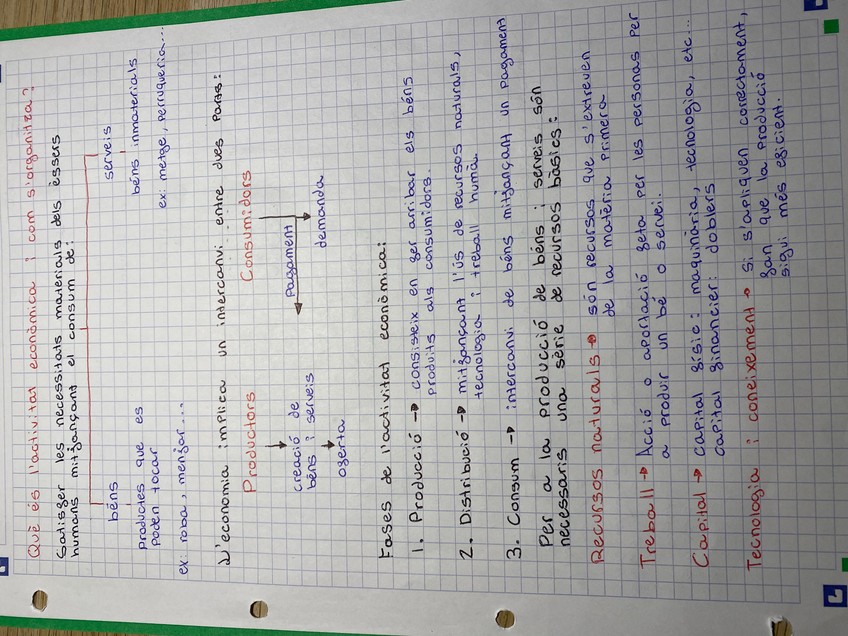 Què és l'activitat econòmica i com s'organitza?
Satisfer les necessitats materials dels éssers
humans mitjançant el consum de:
béns
Productes que es
poden tocar
ex: roba, menjar...
serveis
béns inmaterials
ex: metge, perruqueria...
L'economia implica un intercanvi entre dues parts:
Productors
creació de
béns i serveis
oferta
Pagament
Consumidors
demanda
Fases de l'activitat econòmica:
1. Producció → consisteix en fer arribar els béns
produïts als consumidors.
2. Distribució → mitjançant l'ús de recursos naturals,
tecnologia i treball humà.
3. Consum → intercanvi de béns mitjançant un pagament
Per a la producció de béns i serveis són
necessaris una sèrie de recursos bàsics:
Recursos naturals → són recursos que s'extreuen
de la matèria primera
Treball → Acció o aportació feta per les personas per
a produir un bé o servei.
Capital → capital físic: maquinària, tecnologia, etc...
capital financier: doblers
Tecnologia i coneixement → si s'apliquen correctament,
fan que la producció
sigui més eficient.